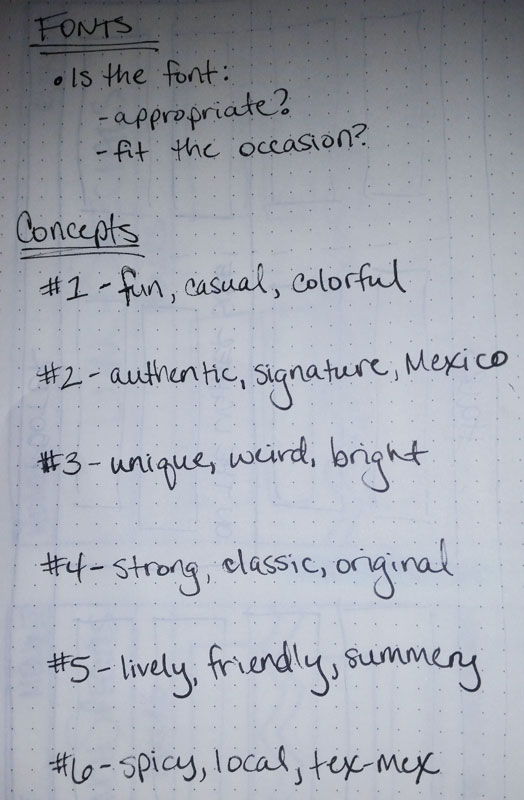 FONTS
• Is the font:
- appropriate?
- fit the occasion?
Concepts
#1 - fun, casual, colorful
#2 - authentic, signature, Mexico
#3 - unique, weird, bright
#4 - strong, classic, original
#5 - lively, friendly, summery
#6 - spicy, local, tex-mex